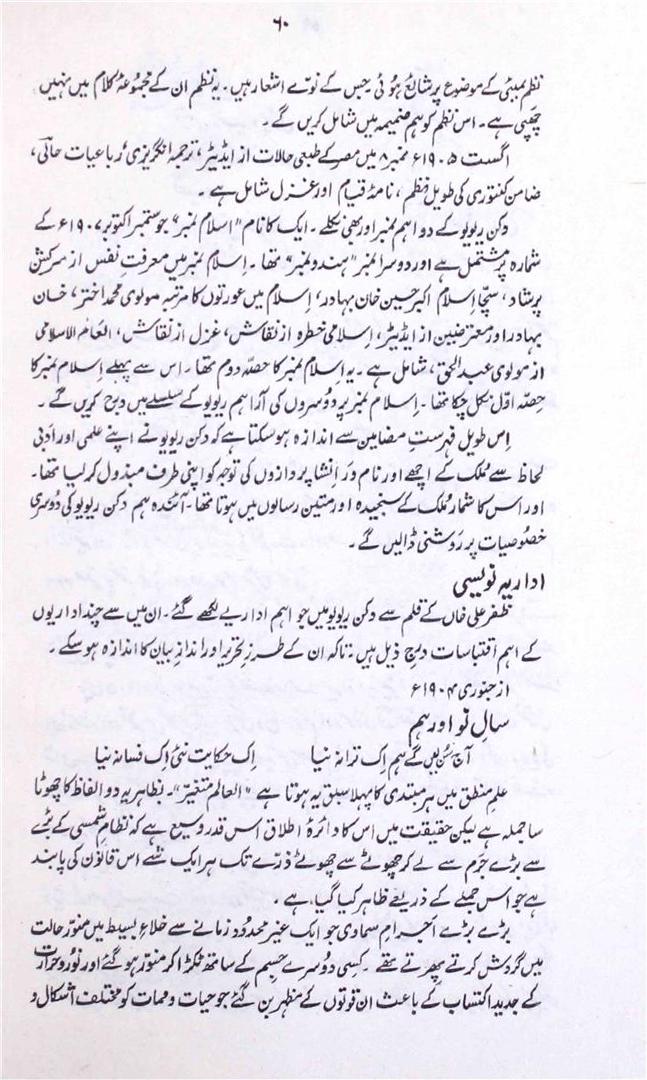 ۶۰
نظم بمبئی کے موضوع پر شائع ہوئی جس کے نوے اشعار ہیں۔ یہ نظم ان کے مجموعۂ کلام میں نہیں
چھپی ہے۔ اس نظم کو ہم ضمیمہ میں شامل کریں گے۔
اگست ۱۹۰۵ء نمبر ۸ میں مصر کے طبعی حالات از ایڈیٹر، ترجمہ انگریزی رباعیات حالی،
ضامن کنتوری کی طویل نظم، نامۂ قیام اور غزل شامل ہے۔
دکن ریویو کے دو اہم نمبر اور بھی نکلے۔ ایک کا نام "اسلام نمبر" جو ستمبر اکتوبر ۱۹۰۷ء کے
شمارہ پر مشتمل ہے اور دوسرا نمبر "ہندو نمبر" تھا۔ اسلام نمبر میں معرفتِ نفس از سرکشن
پرشاد، سچا اسلام اکبر حسین خان بہادر، اسلام میں عورتوں کا مرتبہ مولوی محمد اختر، خان
بہادر اور معترضین از ایڈیٹر، اسلامی خطرہ از نقاش، غزل از نقاش، العالم الاسلامی
از مولوی عبدالحق، شامل ہے۔ یہ اسلام نمبر کا حصہ دوم تھا۔ اس سے پہلے اسلام نمبر کا
حصہ اوّل نکل چکا تھا۔ اسلام نمبر پر دوسروں کی آرا ہم ریویو کے سلسلے میں درج کریں گے۔
اس طویل فہرستِ مضامین سے اندازہ ہو سکتا ہے کہ دکن ریویو نے اپنے علمی اور ادبی
لحاظ سے ملک کے اچھے اور نام ور انشا پردازوں کی توجہ کو اپنی طرف مبذول کر لیا تھا۔
اور اس کا شمار ملک کے سنجیدہ اور متین رسالوں میں ہوتا تھا۔ آئندہ ہم دکن ریویو کی دوسری
خصوصیات پر روشنی ڈالیں گے۔
اداریہ نویسی
ظفر علی خاں کے قلم سے دکن ریویو میں جو اہم اداریے لکھے گئے۔ ان میں سے چند اداریوں
کے اہم اقتباسات درج ذیل ہیں۔ تاکہ ان کے طرزِ تحریر اور اندازِ بیان کا اندازہ ہو سکے۔
از جنوری ۱۹۰۴ء
سالِ نو اور ہم
آج سُن لیں گے ہم اِک ترانہ نیا اک حکایت نئی اِک فسانہ نیا
علمِ منطق میں ہر مبتدی کا پہلا سبق یہ ہوتا ہے "العالم متغیر"۔ بظاہر یہ دو الفاظ کا چھوٹا
سا جملہ ہے لیکن حقیقت میں اس کا دائرۂ اطلاق اس قدر وسیع ہے کہ نظامِ شمسی کے بڑے
سے بڑے جرم سے لے کر چھوٹے سے چھوٹے ذرّے تک ہر ایک شے اس قانون کی پابند
ہے جو اس جملے کے ذریعے ظاہر کیا گیا ہے۔
بڑے بڑے اجرامِ سماوی جو ایک غیر محدود زمانے سے خلاءِ بسیط میں منور حالت
میں گردش کرتے پھرتے تھے۔ کسی دوسرے جسم کے ساتھ ٹکرا کر منور ہو گئے اور نور و حرارت
کے جدید اکتساب کے باعث ان قوتوں کے مظہر بن گئے جو حیات و ممات کو مختلف اشکال و